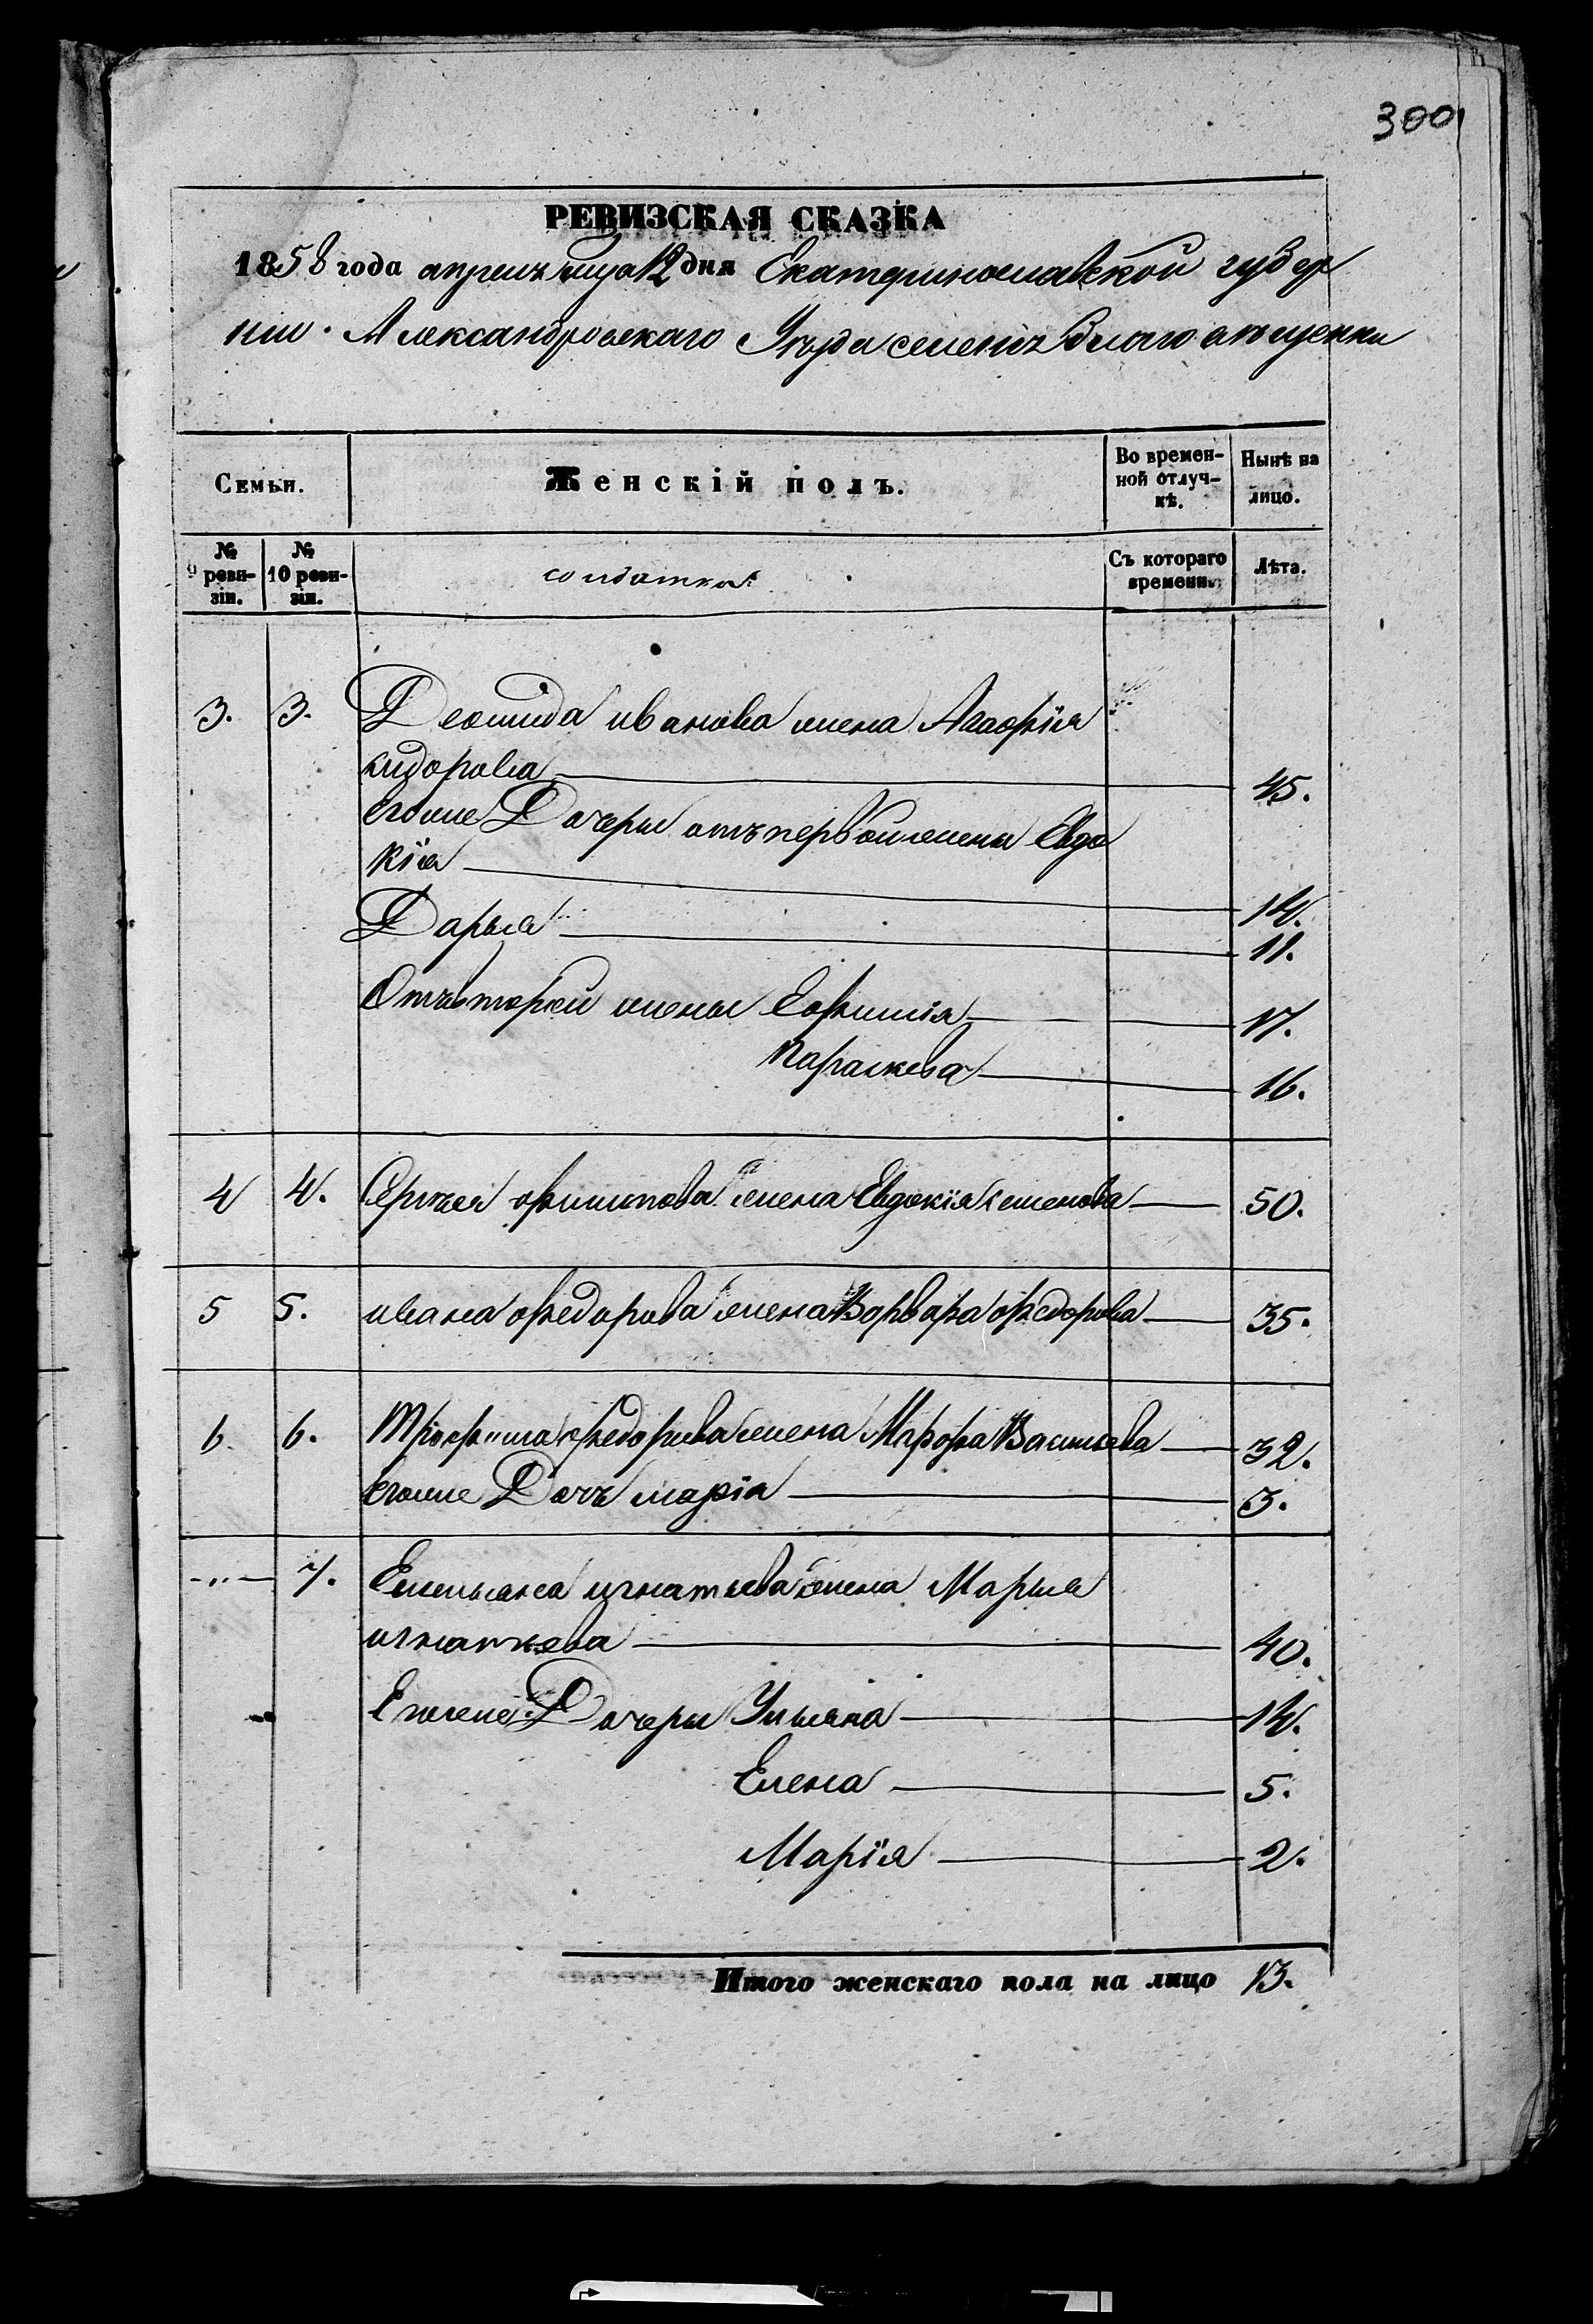 300
РЕВИЗСКАЯ СКАЗКА
1858 года апреля мца 12 дня Екатеринославской губер
нии. Александровскаго Уезда селения Благовещенки
Семьи.
Женскій полъ.
Во времен-
ной отлуч-
кѣ.
Нынѣ на
лицо.
№
9 реви-
зіи.
№
10 реви-
зіи.
солдатка
Съ котораго
времени.
Лѣта.
3. 3. Деомида иванова жена Агафкія
сидорова 45.
егоже Дочери отъ первой жены Евдо
кія 14.
Дарья 11.
Отъ второй жены Ефимія 17.
параскева 16.
4 4. Сергея филипова жена Евдокія семенова 50.
5 5. ивана федорова жена Варвара федорова 35.
6. 6. Трофима федорова жена Марфа Васильева 32.
егоже Дочь марія 3.
-„- 7. Емельяна игнатьева жена Марья
игнатьева 40.
Егоже Дочери Ульяна 14.
Елена 5.
Марія 2.
Итого женскаго пола на лицо 13.